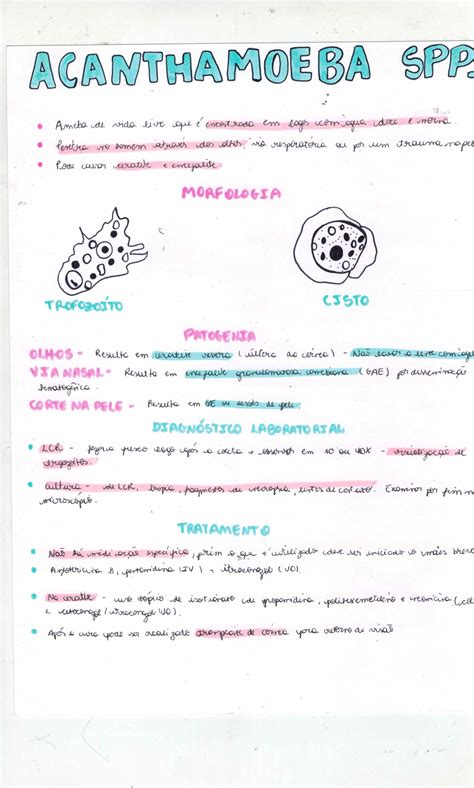 ACANTHAMOEBA SPP.
• Ameba de vida livre que é encontrada em lagos com água doce e morna.
• Penetra no homem através dos olhos, via respiratória ou por um trauma na pel
• Pode causar ceratite e encefalite
MORFOLOGIA
TROFOZOÍTO CISTO
PATOGENIA
OLHOS - Resulta em ceratite severa (úlcera da córnea) - Não lavar a lente com água
VIA NASAL - Resulta em encefalite granulomatosa amebiana (GAE) por disseminação
hematogênica.
CORTE NA PELE - Resulta em GE ou lesões de pele.
DIAGNÓSTICO LABORATORIAL
• LCR - fresco logo após a coleta e observar em 10 ou 40X - visualização de
• Cultura - de LCR, biópsia, fragmentos de necropsia, lentes de contato. Examinar por
microscópio.
TRATAMENTO
• Não há medicação específica, porém o que é utilizado deve ser iniciado o mais breve
• Anfotericina B, pentamidina (IV) + itraconazol (VO).
• Na ceratite - uso tópico de isetionato de propamidina, e neomicina
e cetoconazol / itraconazol VO).
• Após a cura pode ser realizado transplante de córnea para retorno da visão